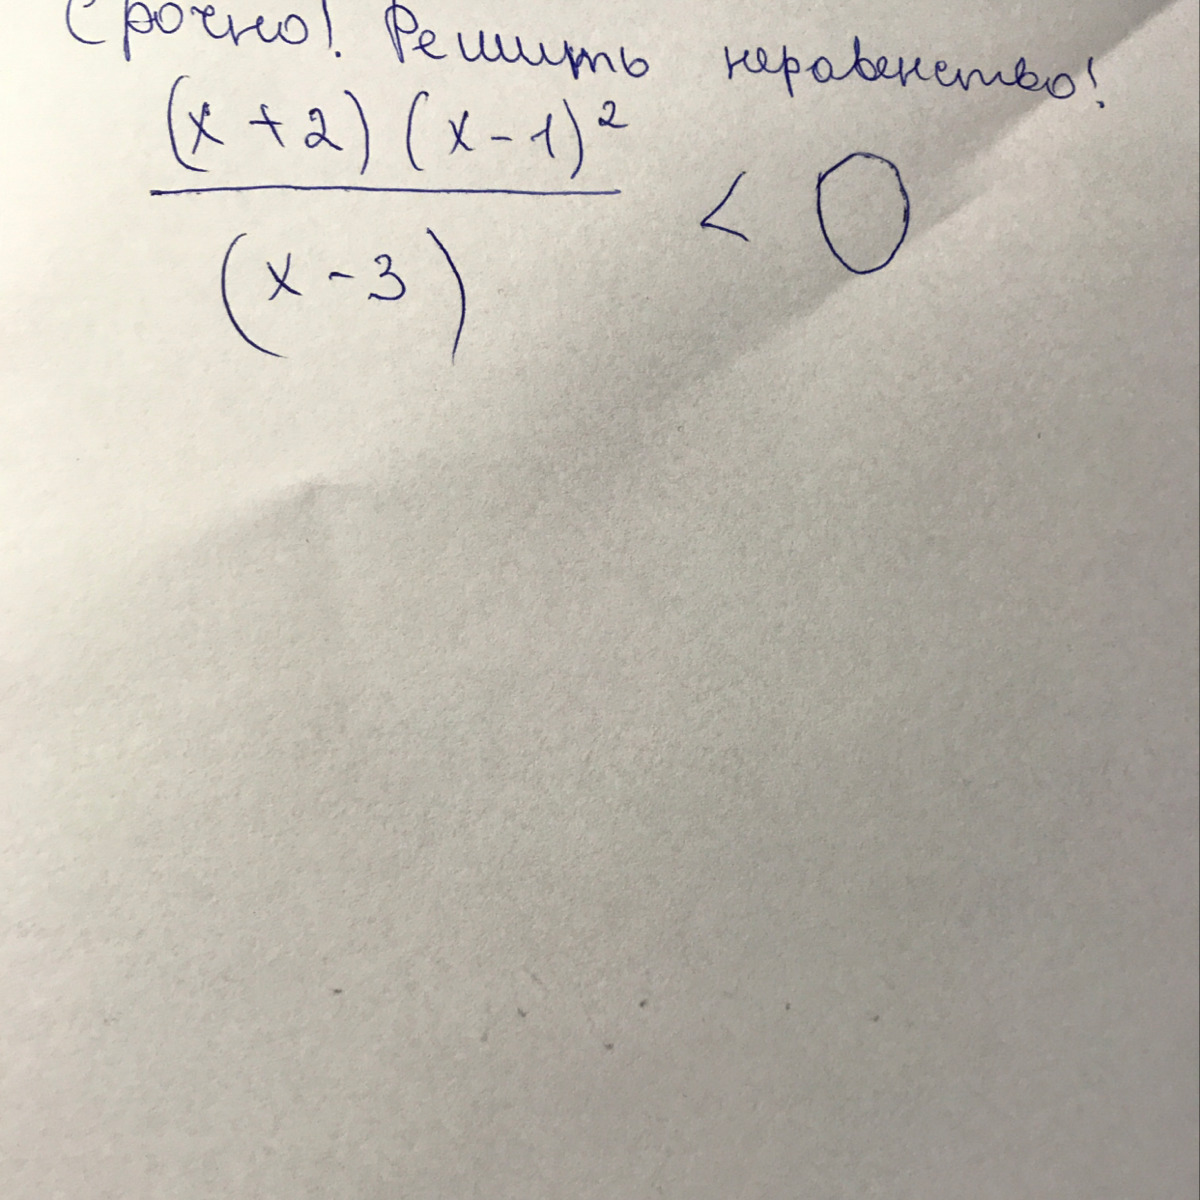 Срочно! Решить неравенство!
(x + 2) (x - 1)²
< 0
(x - 3)